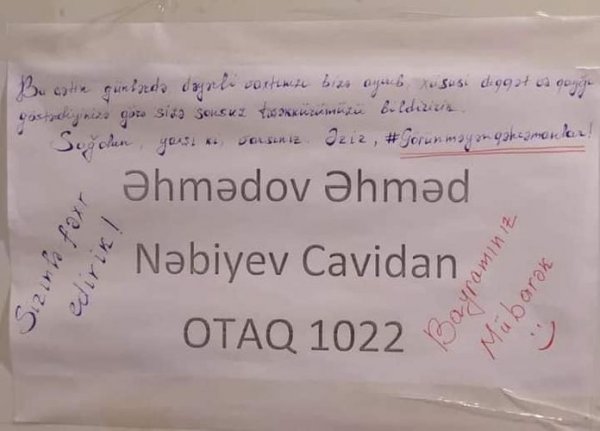 Bu çətin günlərdə dəyərli vaxtınızı bizə ayırıb, xüsusi diqqət və qayğı
göstərdiyinizə görə sizə sonsuz təşəkkürümüzü bildiririk.
Sağolun, yaxşı ki, varsınız. Əziz, #Görünməyənqəhrəmanlar!
Əhmədov Əhməd
Nəbiyev Cavidan
OTAQ 1022
Sizinlə fəxr
edirik!
Bayramınız
Mübarək